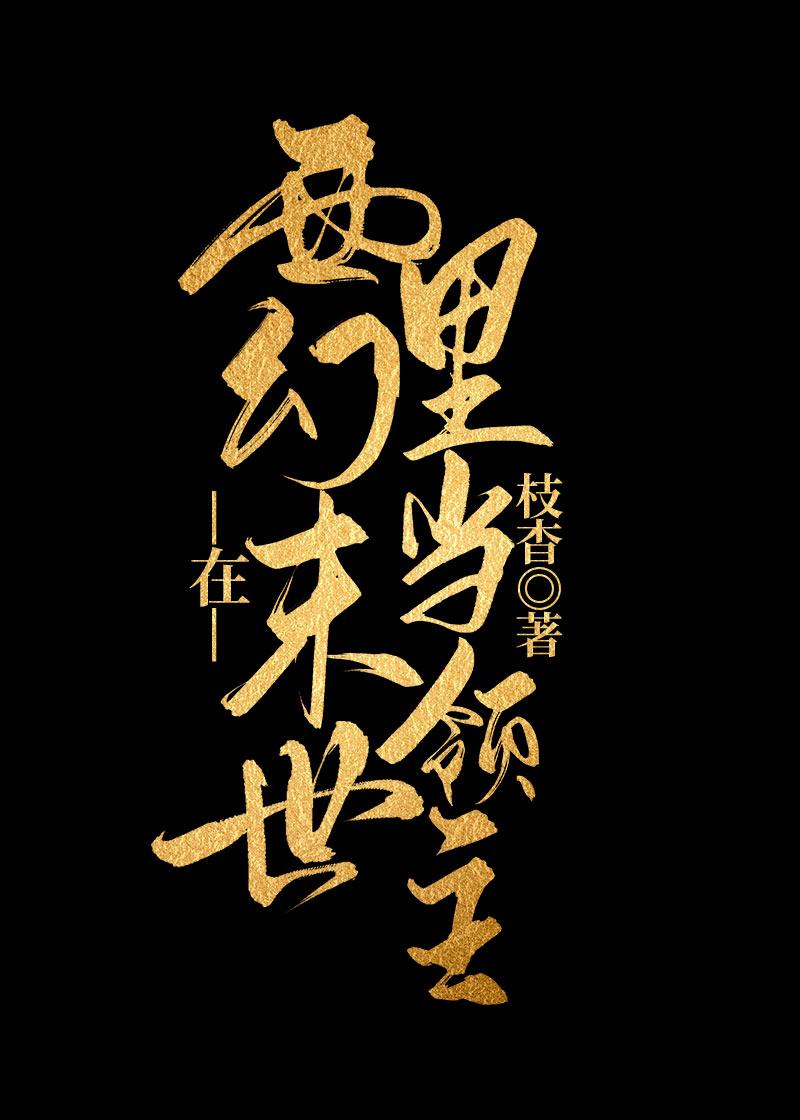 在
西幻末世
里当领主
枝杏◎著